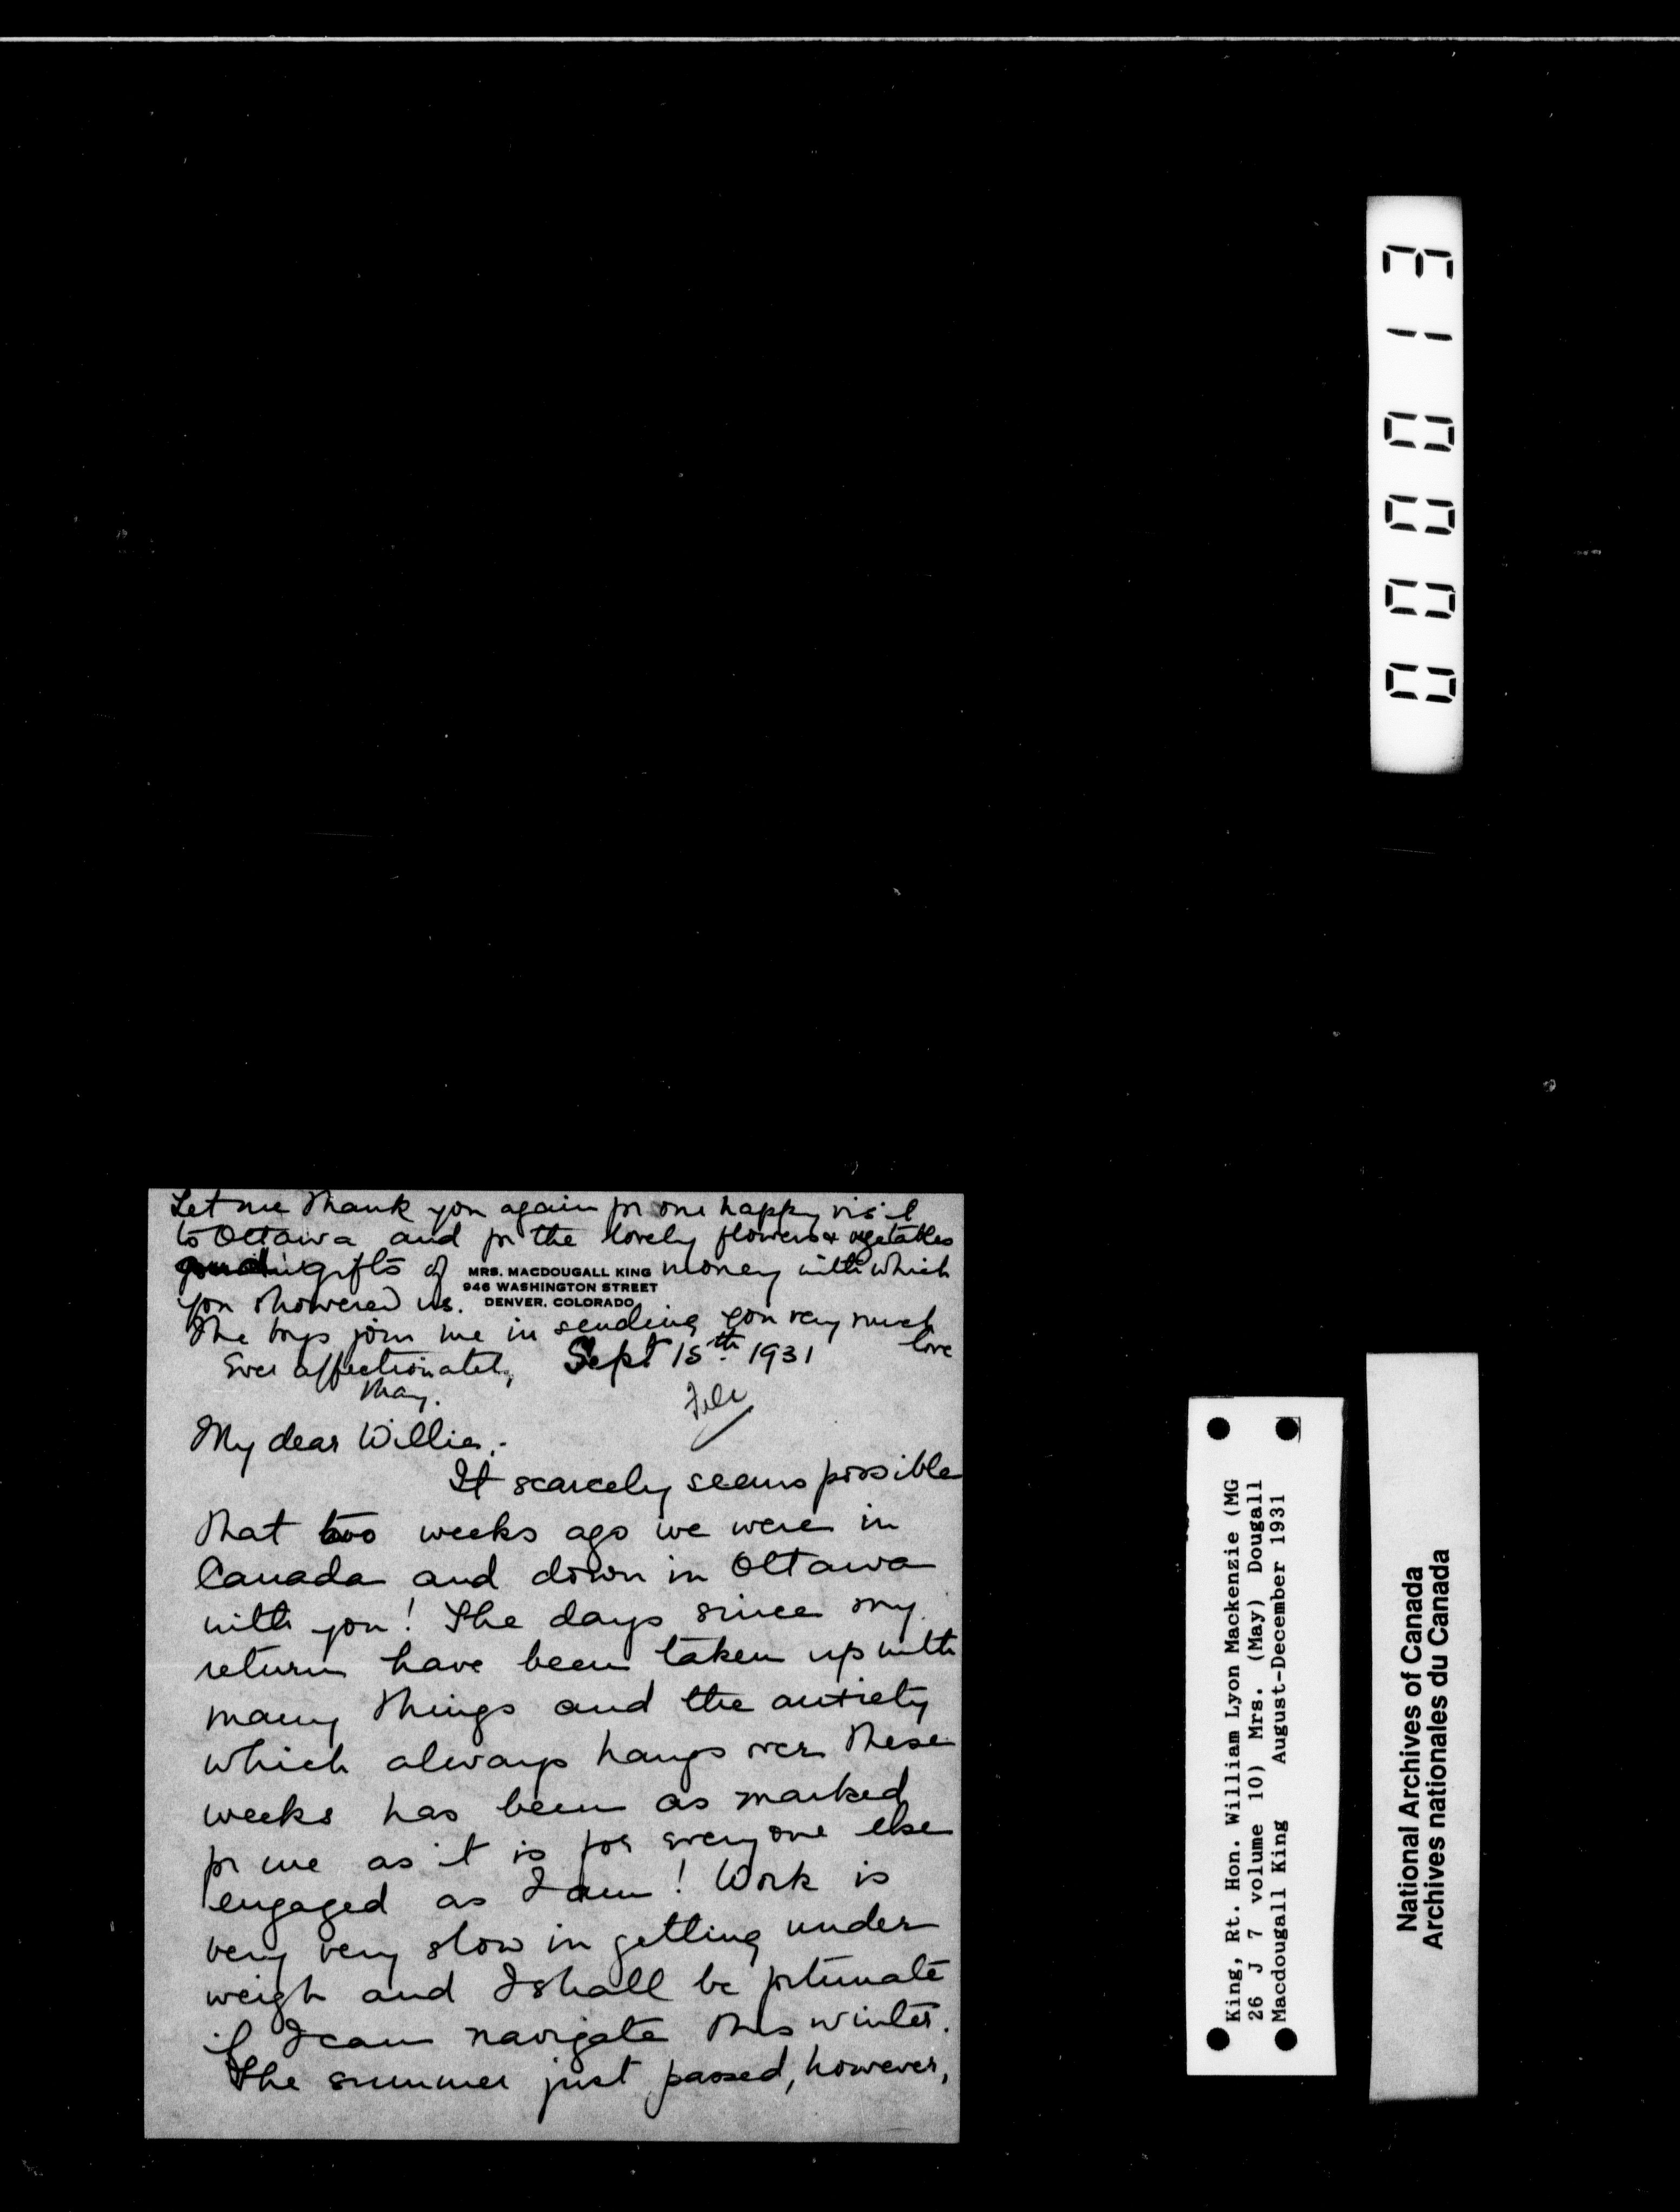 Let me thank you again for one happy visit
to Ottawa and for the lovely flowers & vegetables
gifts of money with which
you showered us.
The boys join me in sending you very much
love
Ever affectionately,
May.
MRS. MACDOUGALL KING
946 WASHINGTON STREET
DENVER, COLORADO
Sept 15th 1931
File
My dear Willie,-
It scarcely seems possible
that two weeks ago we were in
Canada and down in Ottawa
with you! The days since my
return have been taken up with
many things and the anxiety
which always hangs over these
weeks has been as marked
for me as it is for everyone else
engaged as I am! Work is
very very slow in getting under
weigh and I shall be fortunate
if I can navigate this winter.
The summer just passed, however,
000013
King, Rt. Hon. William Lyon Mackenzie (MG
26 J 7 volume 10) Mrs. (May) Dougall
Macdougall King August-December 1931
National Archives of Canada
Archives nationales du Canada